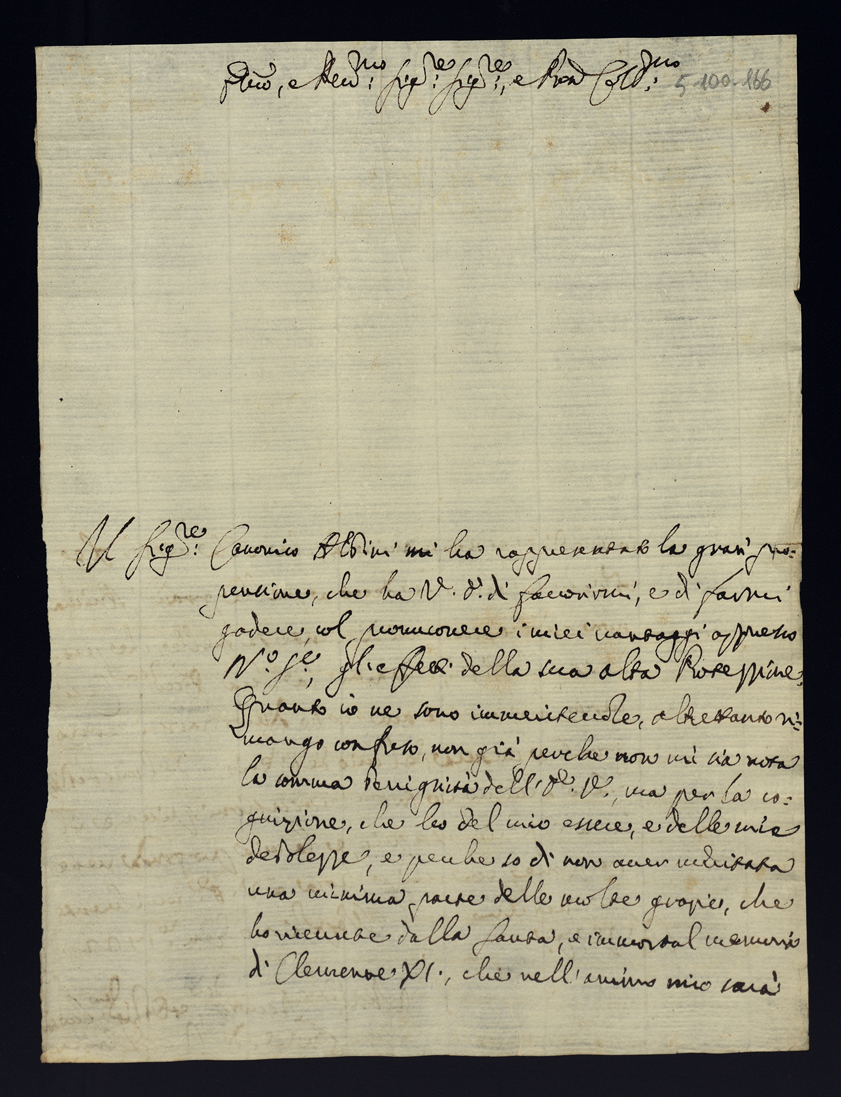 Em̃o, e Reu.mo Sig.re Sig.re, e Pron Col.mo
5-100-166
Il Sig.re Canonico Aldini mi ha rappresentato la gran pro-
pensione, che ha V. E. di fauorirmi, e di farmi
godere, col promouere i miei uantaggi appresso
N.o S.e, gli effetti della sua alta Protezzione.
Quanto io ne sono immeriteuole, altrettanto ri-
mango confuso, non già perche non mi sia nota
la somma benignità dell' E. V., ma per la co-
gnizione, che ho del mio essere, e delle mie
debolezze, e perche so di non auer meritata
una minima parte delle molte grazie, che
ho riceuute dalla santa, e immortal memoria
di Clemente XI., che nell' animo mio sarà